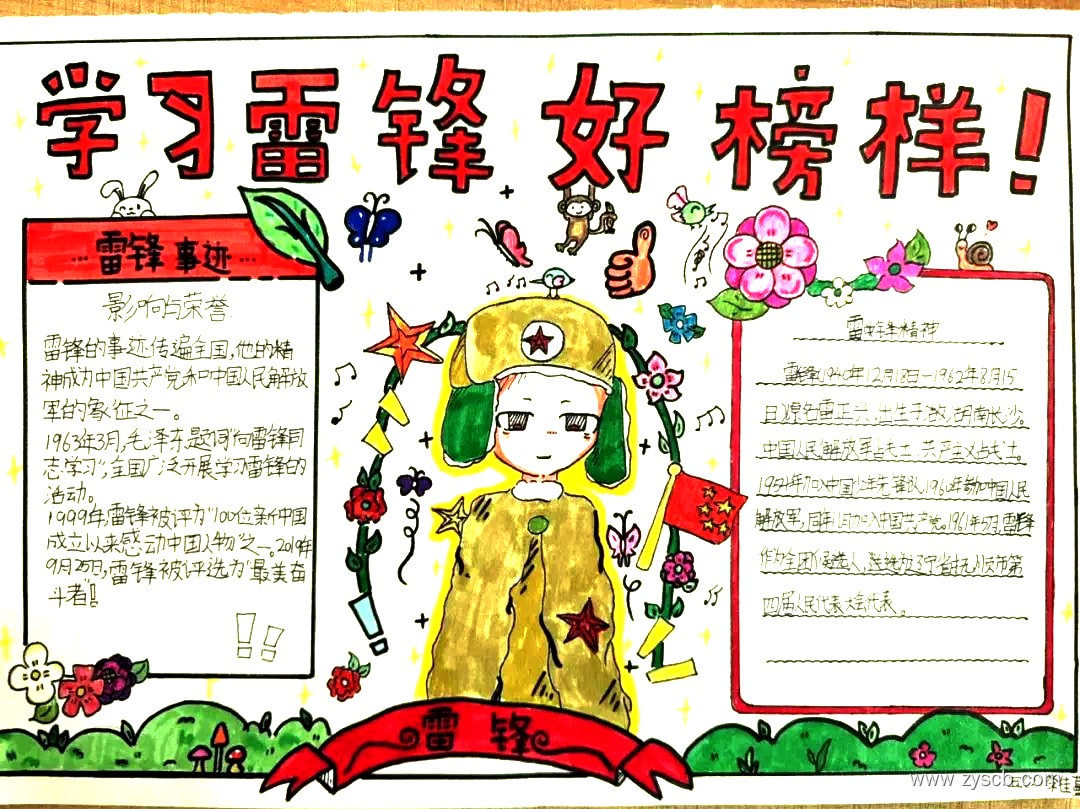 学习雷锋好榜样!
雷锋事迹
影响与荣誉
雷锋的事迹传遍全国,他的精
神成为中国共产党和中国人民解放
军的象征之一。
1963年3月,毛泽东题词"向雷锋同
志学习",全国广泛开展学习雷锋的
活动。
1999年,雷锋被评为"100位新中国
成立以来感动中国人物"之一。2019年
9月25日,雷锋被评选为"最美奋
斗者"!
雷锋精神
雷锋(1940年12月18日-1962年8月15
日)原名雷正兴,出生于 湖南长沙。
中国人民解放军战士、共产主义战士。
1954年加入中国少年先锋队,1960年参加中国人民
解放军,同年11月加入中国共产党。1961年5月,雷锋
作为 候选人, 省抚顺市第
四届人民代表大会代表。
雷锋
www.zyscb.com